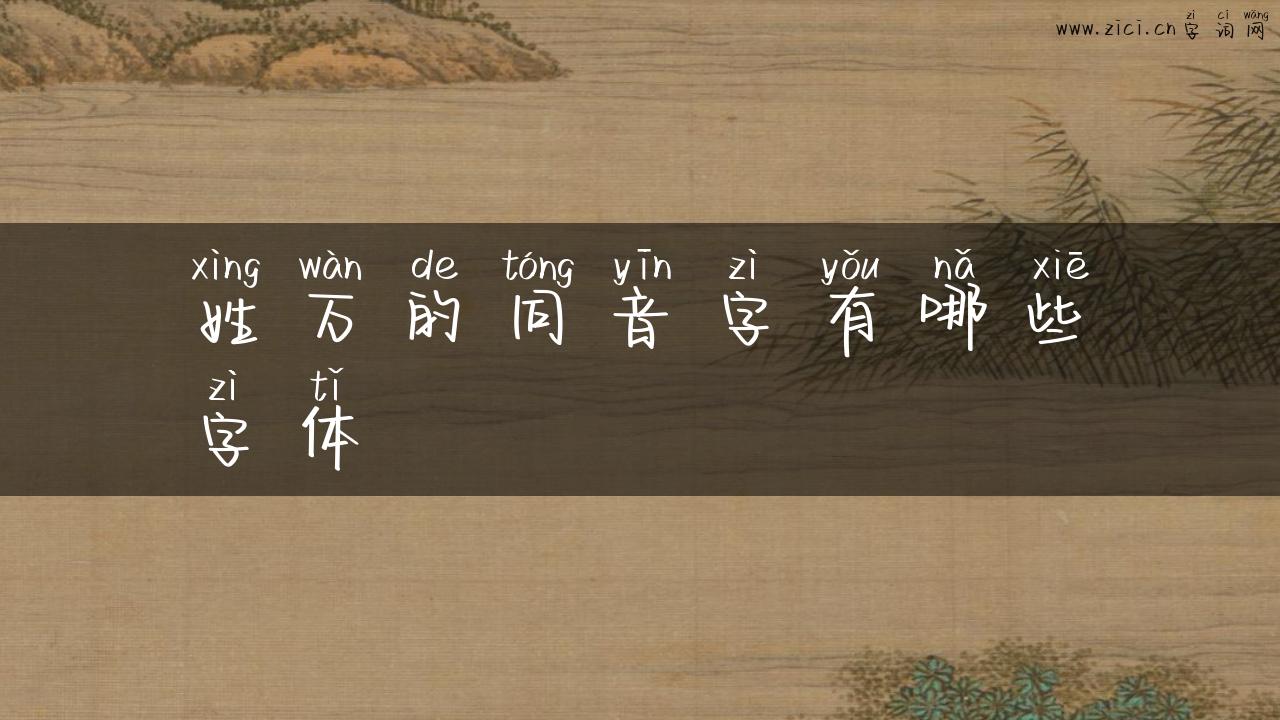 zì cí wǎng
www.zici.cn 字 词 网
xìng wàn de tóng yīn zì yǒu nǎ xiē
姓 万 的 同 音 字 有 哪 些
zì tǐ
字 体